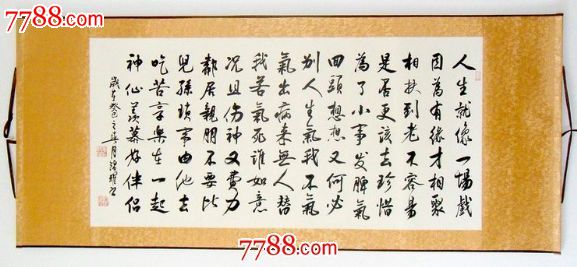 7788.com
人生就像一場戲
因為有緣才相聚
相扶到老不容易
是否更該去珍惜
為了小事发脾氣
回頭想想又何必
别人生氣我不氣
氣出病来無人替
我若氣死誰如意
况且伤神又費力
鄰居親朋不要比
兒孫瑣事由他去
吃苦享樂在一起
神仙羡慕好伴侣
歲在癸巳之年
7788.com
7788.com